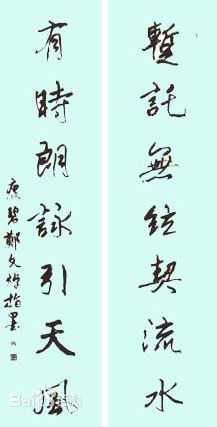 暫託無弦契流水
有時朗詠引天風
碧鄭文焯指墨
Bai 百科